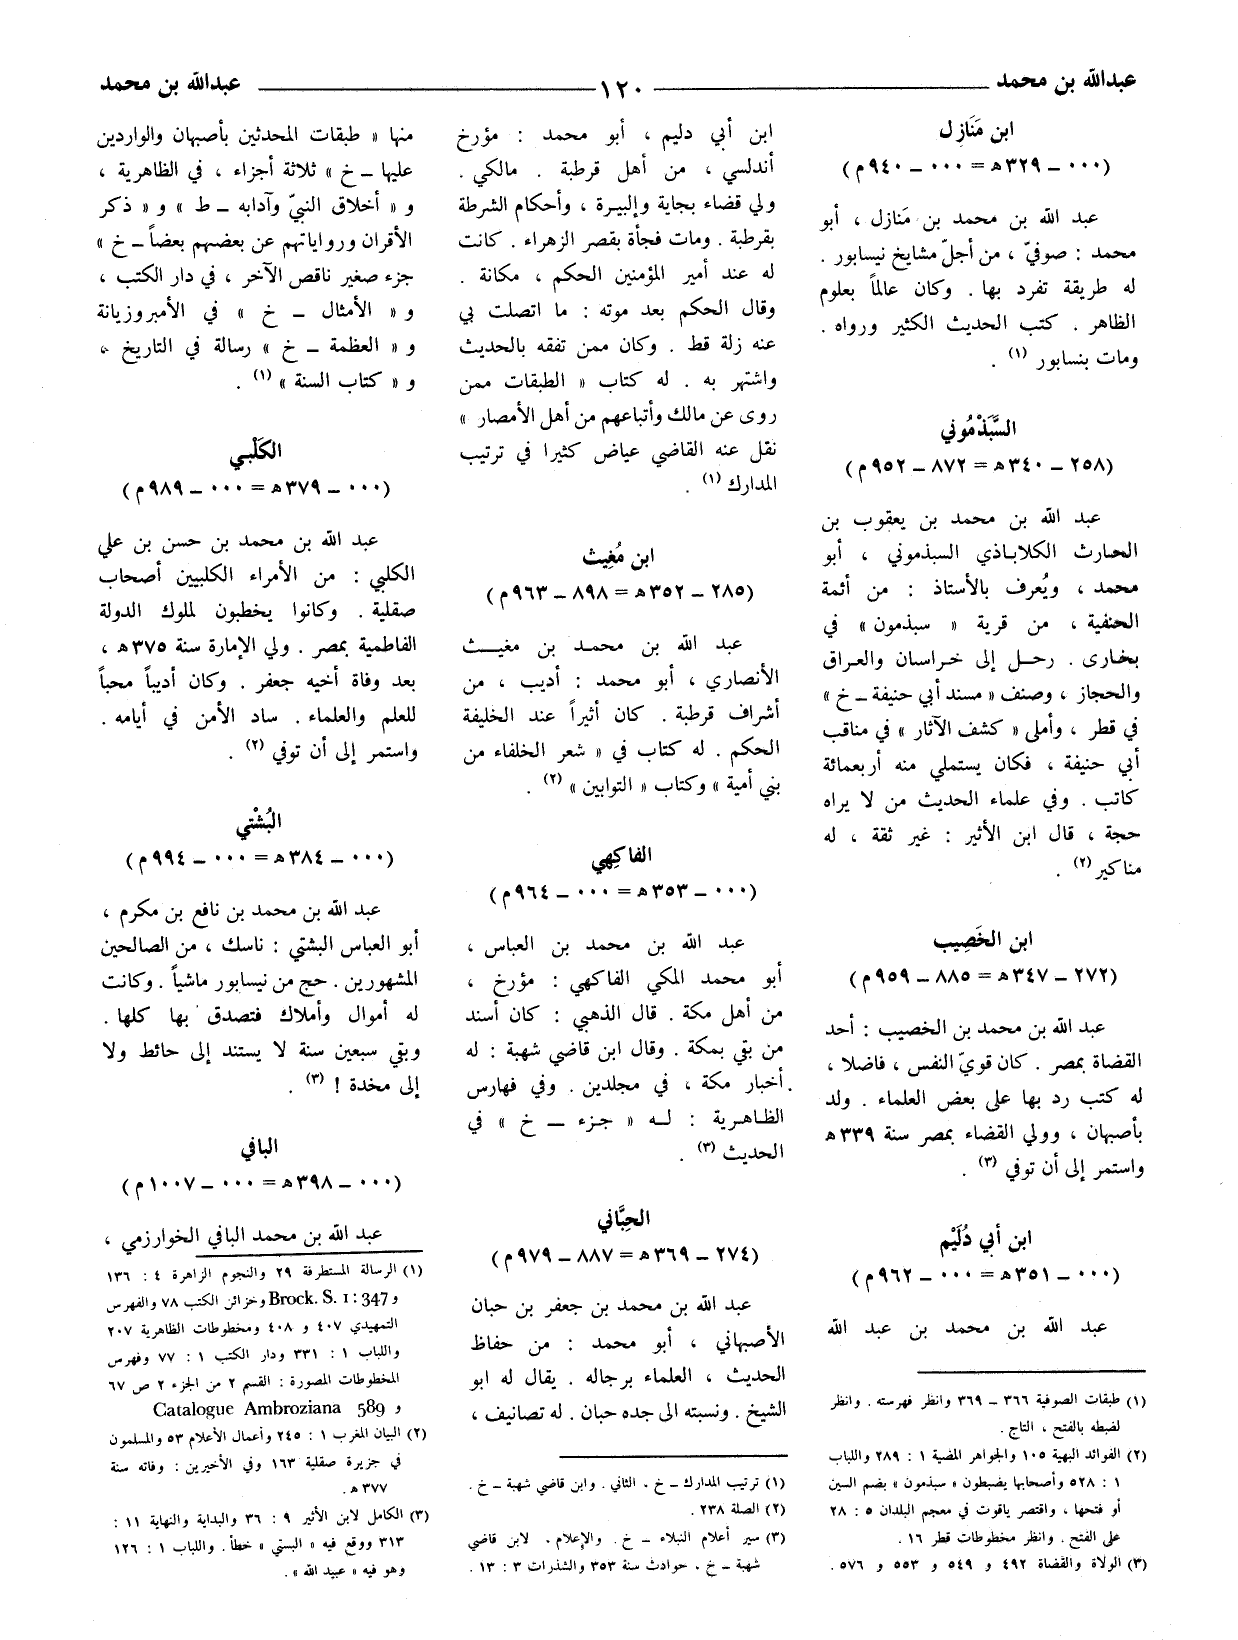 عبدالله بن محمد ١٢٠ عبدالله بن محمد
ابن مَنَازِل
(٠٠٠ - ٣٢٩ ه = ٠٠٠ - ٩٤٠ م)
عبد الله بن محمد بن مَنازل ، أبو
محمد : صوفيّ ، من أجلّ مشايخ نيسابور .
له طريقة تفرد بها . وكان عالماً بعلوم
الظاهر . كتب الحديث الكثير ورواه .
ومات بنسابور (١) .
السَّبَذْمُوني
(٢٥٨ - ٣٤٠ ه = ٨٧٢ - ٩٥٢ م)
عبد الله بن محمد بن يعقوب بن
الحارث الكلاباذي السبذموني ، أبو
محمد ، ويُعرف بالأستاذ : من أئمة
الحنفية ، من قرية « سبذمون » في
بخارى . رحل إلى خراسان والعراق
والحجاز ، وصنف « مسند أبي حنيفة - خ »
في قطر ، وأملى « كشف الآثار » في مناقب
أبي حنيفة ، فكان يستملي منه أربعمائة
كاتب . وفي علماء الحديث من لا يراه
حجة ، قال ابن الأثير : غير ثقة ، له
مناكير (٢) .
ابن الخَصِيب
(٢٧٢ - ٣٤٧ ه = ٨٨٥ - ٩٥٩ م)
عبد الله بن محمد بن الخصيب : أحد
القضاة بمصر . كان قويّ النفس ، فاضلا ،
له كتب رد بها على بعض العلماء . ولد
بأصبهان ، وولي القضاء بمصر سنة ٣٣٩ ه
واستمر إلى أن توفي (٣) .
ابن أبي دُلَيْم
(٠٠٠ - ٣٥١ ه = ٠٠٠ - ٩٦٢ م)
عبد الله بن محمد بن عبد الله
(١) طبقات الصوفية ٣٦٦ - ٣٦٩ وانظر فهرسته . وانظر
لضبطه بالفتح ، التاج .
(٢) الفوائد البهية ١٠٥ والجواهر المضية ١ : ٢٨٩ واللباب
١ : ٥٢٨ وأصحابها يضبطون « سبذمون » بضم السين
أو فتحها ، واقتصر ياقوت في معجم البلدان ٥ : ٢٨
على الفتح . وانظر مخطوطات قطر ١٦ .
(٣) الولاة والقضاة ٤٩٢ و ٥٤٩ و ٥٥٣ و ٥٧٦ .
ابن أبي دليم ، أبو محمد : مؤرخ
أندلسي ، من أهل قرطبة . مالكي .
ولي قضاء بجاية وإلبيرة ، وأحكام الشرطة
بقرطبة . ومات فجأة بقصر الزهراء . كانت
له عند أمير المؤمنين الحكم ، مكانة .
وقال الحكم بعد موته : ما اتصلت بي
عنه زلة قط . وكان ممن تفقه بالحديث
واشتهر به . له كتاب « الطبقات ممن
روى عن مالك وأتباعهم من أهل الأمصار »
نقل عنه القاضي عياض كثيرا في ترتيب
المدارك (١) .
ابن مُغِيث
(٢٨٥ - ٣٥٢ ه = ٨٩٨ - ٩٦٣ م)
عبد الله بن محمد بن مغيث
الأنصاري ، أبو محمد : أديب ، من
أشراف قرطبة . كان أثيراً عند الخليفة
الحكم . له كتاب في « شعر الخلفاء من
بني أمية » وكتاب « التوابين » (٢) .
الفاكِهي
(٠٠٠ - ٣٥٣ ه = ٠٠٠ - ٩٦٤ م)
عبد الله بن محمد بن العباس ،
أبو محمد المكي الفاكهي : مؤرخ ،
من أهل مكة . قال الذهبي : كان أسند
من بقي بمكة . وقال ابن قاضي شهبة : له
أخبار مكة ، في مجلدين . وفي فهارس
الظاهرية : له « جزء - خ » في
الحديث (٣) .
الحِبَّاني
(٢٧٤ - ٣٦٩ ه = ٨٨٧ - ٩٧٩ م)
عبد الله بن محمد بن جعفر بن حبان
الأصبهاني ، أبو محمد : من حفاظ
الحديث ، العلماء برجاله . يقال له ابو
الشيخ . ونسبته الى جده حبان . له تصانيف ،
(١) ترتيب المدارك - خ . الثاني . وابن قاضي شهبة - خ .
(٢) الصلة ٢٣٨ .
(٣) سير أعلام النبلاء - خ . والإعلام . لابن قاضي
شهبة - خ . حوادث سنة ٣٥٣ والشذرات ٣ : ١٣ .
منها « طبقات المحدثين بأصبهان والواردين
عليها - خ » ثلاثة أجزاء ، في الظاهرية ،
و « أخلاق النبيّ وآدابه - ط » و « ذكر
الأقران ورواياتهم عن بعضهم بعضاً - خ »
جزء صغير ناقص الآخر ، في دار الكتب ،
و « الأمثال - خ » في الأمبروزيانة
و « العظمة - خ » رسالة في التاريخ ،
و « كتاب السنة » (١) .
الكَلْبي
(٠٠٠ - ٣٧٩ ه = ٠٠٠ - ٩٨٩ م)
عبد الله بن محمد بن حسن بن علي
الكلبي : من الأمراء الكلبيين أصحاب
صقلية . وكانوا يخطبون لملوك الدولة
الفاطمية بمصر . ولي الإمارة سنة ٣٧٥ ه ،
بعد وفاة أخيه جعفر . وكان أديباً محباً
للعلم والعلماء . ساد الأمن في أيامه .
واستمر إلى أن توفي (٢) .
البُشْتي
(٠٠٠ - ٣٨٤ ه = ٠٠٠ - ٩٩٤ م)
عبد الله بن محمد بن نافع بن مكرم ،
أبو العباس البشتي : ناسك ، من الصالحين
المشهورين . حج من نيسابور ماشياً . وكانت
له أموال وأملاك فتصدق بها كلها .
وبقي سبعين سنة لا يستند إلى حائط ولا
إلى مخدة ! (٣) .
البافي
(٠٠٠ - ٣٩٨ ه = ٠٠٠ - ١٠٠٧ م)
عبد الله بن محمد البافي الخوارزمي ،
(١) الرسالة المستطرفة ٢٩ والنجوم الزاهرة ٤ : ١٣٦
و Brock. S. 1 : 347 وخزائن الكتب ٧٨ والفهرس
التمهيدي ٤٠٧ و ٤٠٨ ومخطوطات الظاهرية ٢٠٧
واللباب ١ : ٣٣١ ودار الكتب ١ : ٧٧ وفهرس
المخطوطات المصورة : القسم ٢ من الجزء ٢ ص ٦٧
و Catalogue Ambroziana 589
(٢) البيان المغرب ١ : ٢٤٥ وأعمال الأعلام ٥٣ والمسلمون
في جزيرة صقلية ١٦٣ وفي الأخيرين : وفاته سنة
٣٧٧ ه .
(٣) الكامل لابن الأثير ٩ : ٣٦ والبداية والنهاية ١١ :
٣١٣ ووقع فيه « البستي » خطأ . واللباب ١ : ١٢٦
وهو فيه « عبيد الله » .